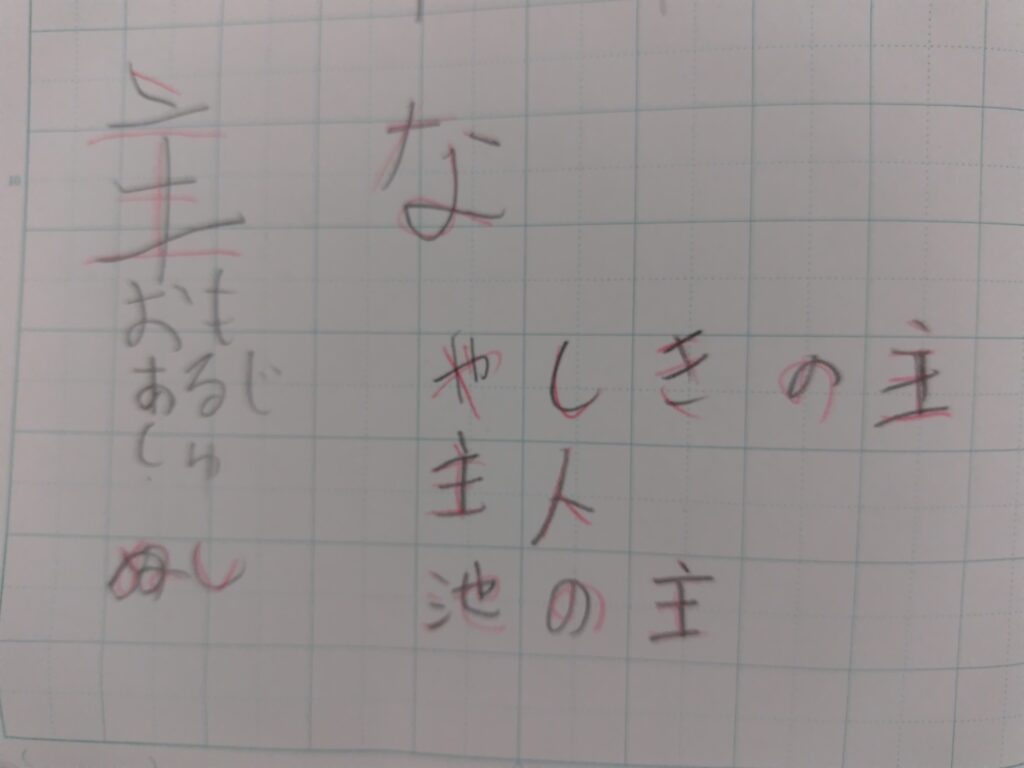 主 な
おも
あるじ やしきの主
しゅ 主人
ぬし 池の主